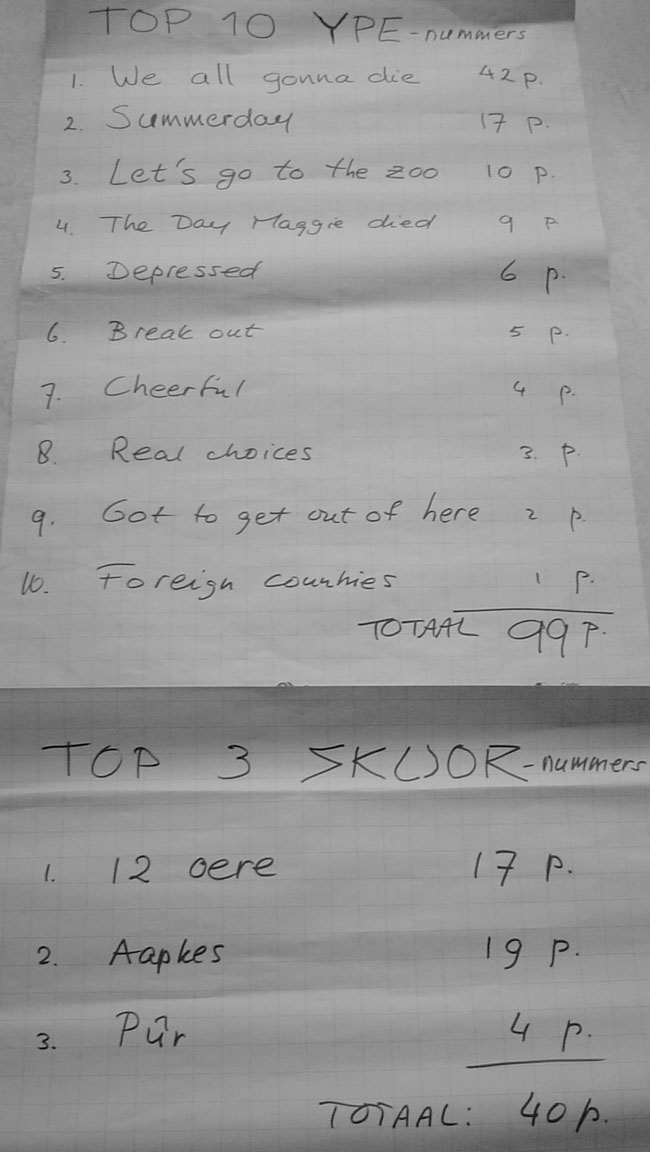 TOP 10 YPE-nummers
1. We all gonna die 42 p.
2. Summerday 17 p.
3. Let's go to the zoo 10 p.
4. The Day Maggie died 9 p
5. Depressed 6 p.
6. Break out 5 p.
7. Cheerful 4 p.
8. Real choices 3. p.
9. Got to get out of here 2 p.
10. Foreign countries 1 p.
TOTAAL 99 P.
TOP 3 SKUOR-nummers
1. 12 oere 17 p.
2. Aapkes 19 p.
3. Pûr 4 p.
TOTAAL: 40 p.